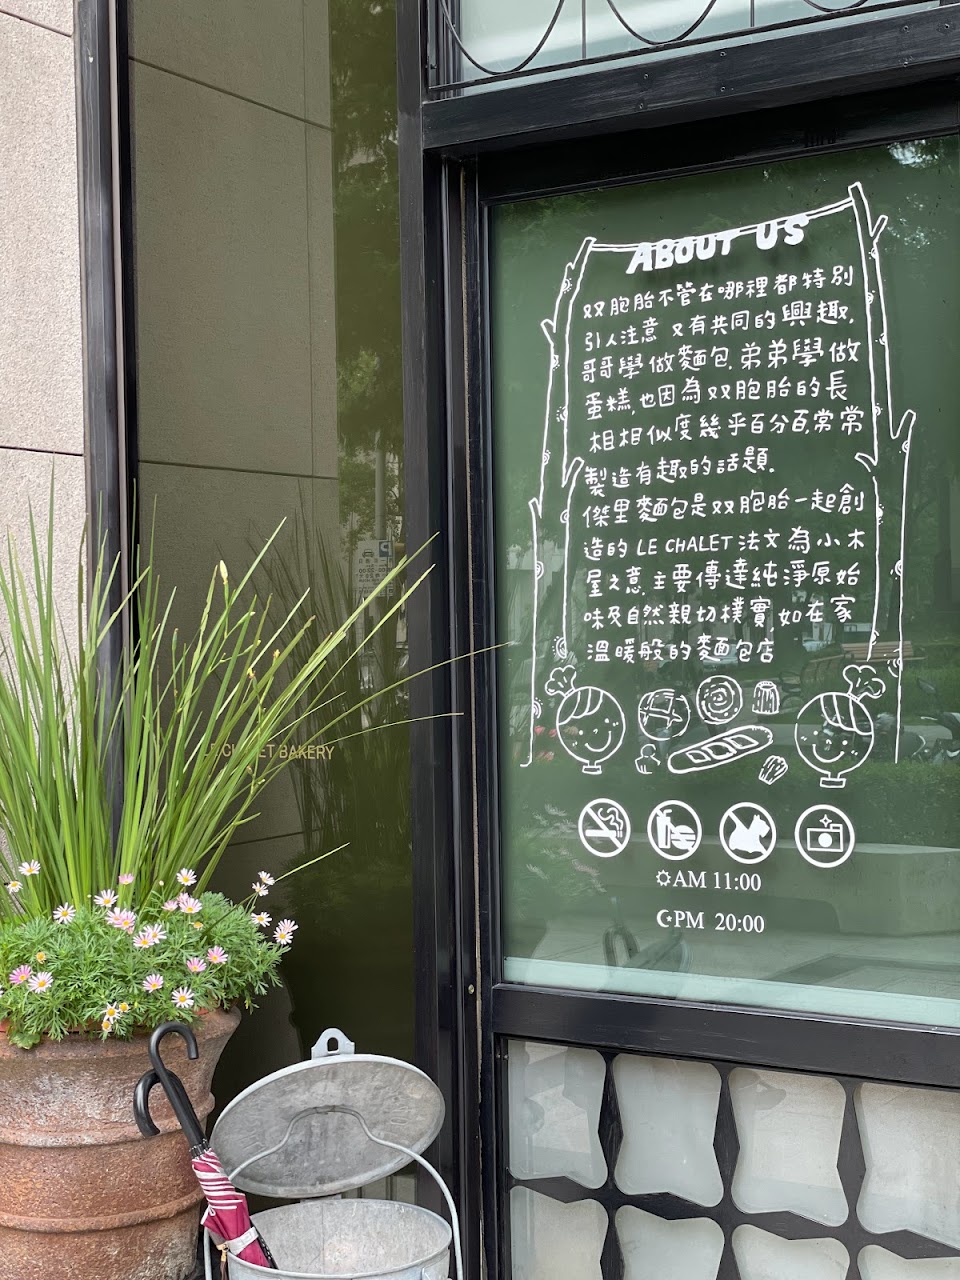 ABOUT US
双胞胎不管在哪裡都特別
引人注意 又有共同的興趣.
哥哥學做麵包.弟弟學做
蛋糕,也因為双胞胎的長
相相似度幾乎百分百,常常
製造有趣的話題.
傑里麵包是双胞胎一起創
造的 LE CHALET 法文為小木
屋之意.主要傳達純淨原始
味及自然親切樸實,如在家
溫暖般的麵包店
LE CHALET BAKERY
AM 11:00
PM 20:00